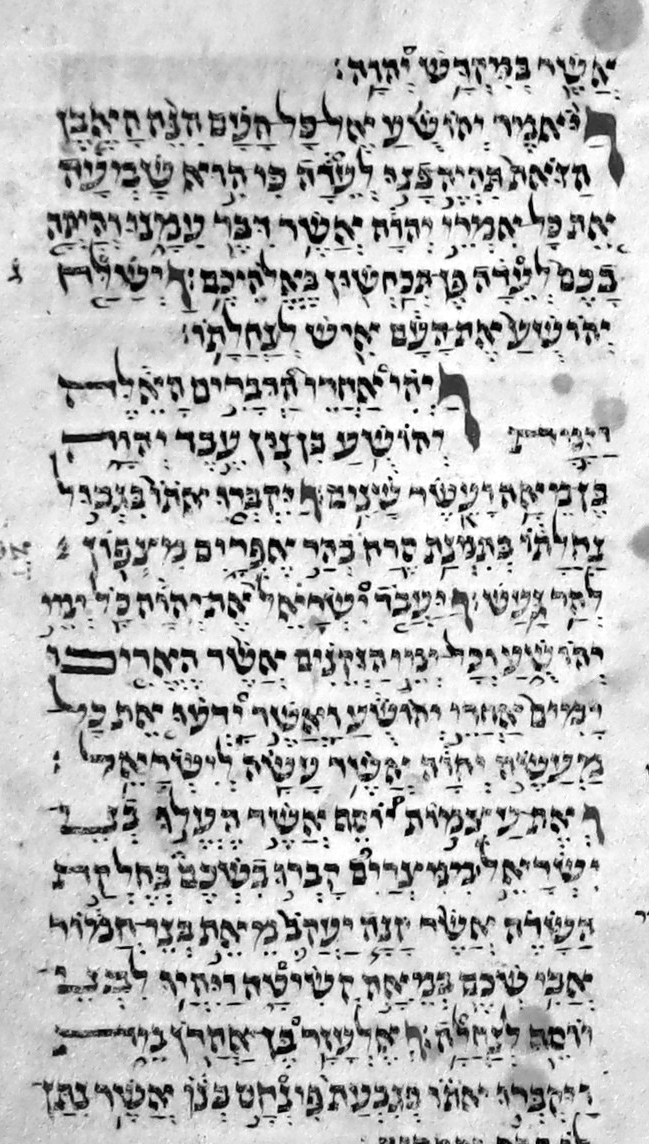 אשר במקדש יהוה׃
ויאמר יהושע אל כל העם הנה האבן
הזאת תהיה בנו לעדה כי היא שמעה
את כל אמרי יהוה אשר דבר עמנו והיתה
בכם לעדה פן תכחשון באלהיכם׃ וישלח
יהושע את העם איש לנחלתו׃
ויהי אחרי הדברים האלה
וימת יהושע בן נון עבד יהוה
בן מאה ועשר שנים׃ ויקברו אתו בגבול
נחלתו בתמנת סרח בהר אפרים מצפון
להר געש׃ ויעבד ישראל את יהוה כל ימי
יהושע וכל ימי הזקנים אשר האריכו
ימים אחרי יהושע ואשר ידעו את כל
מעשה יהוה אשר עשה לישראל׃
ואת עצמות יוסף אשר העלו בני
ישראל ממצרים קברו בשכם בחלקת
השדה אשר קנה יעקב מאת בני חמור
אבי שכם במאה קשיטה ויהיו לבני
יוסף לנחלה׃ ואלעזר בן אהרן מת
ויקברו אתו בגבעת פינחס בנו אשר נתן